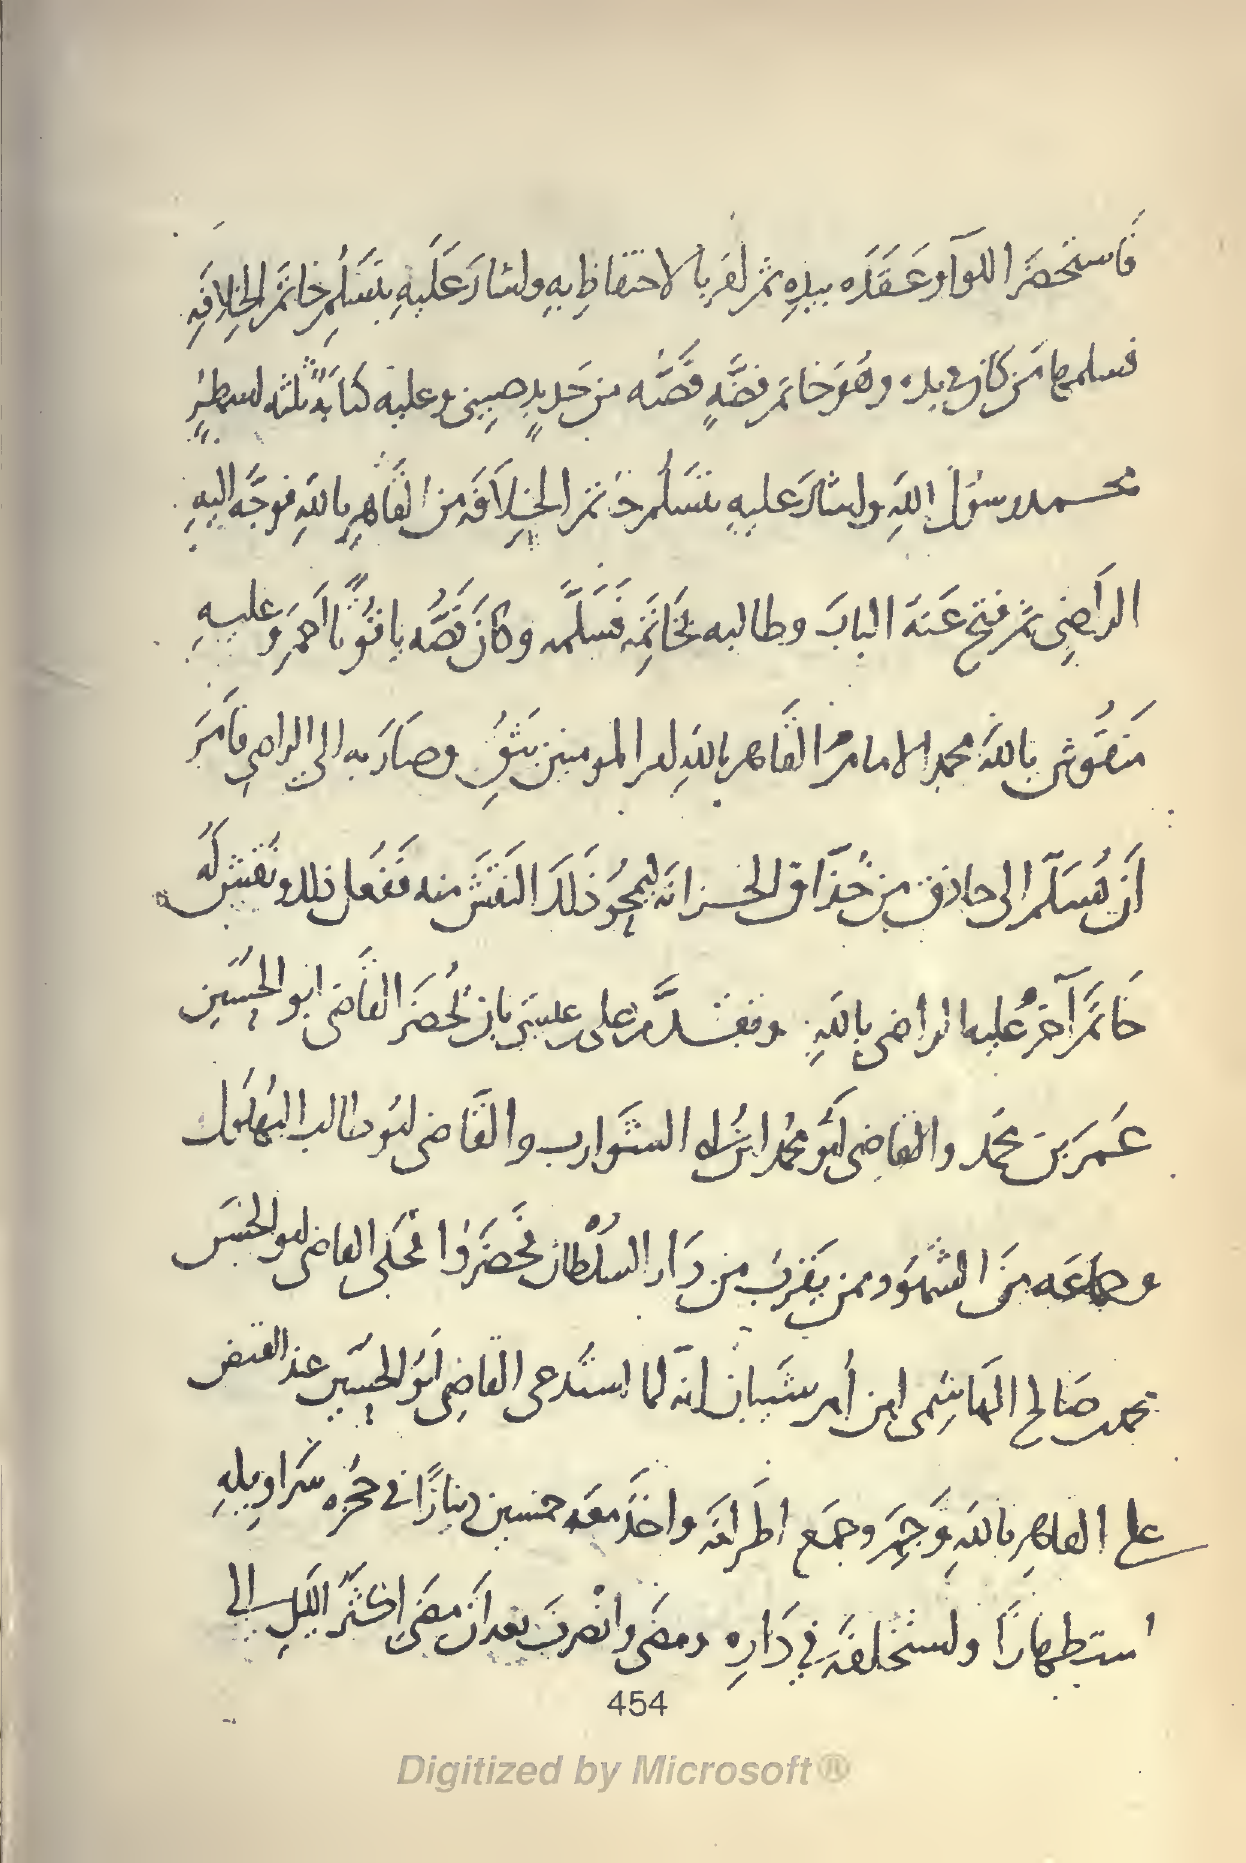 فاستحضَرَ اللوآ وعَقَدَه بيدِهِ ثم امَر بالاحتفاظِ بهِ واشارَ عَلَيهِ بتَسَلُمِ خاتَمَ الخِلافَهِ
فسلمها مَن كان في يده وهُوَ خاتم فضَّهٍ فَصُّه من حَديدٍ صِيني وعليه كتابَةٌ ثلثه اسطرٍ
محمد رسُول اللهِ واشارَ عليهِ بتَسَلُم خاتم الخِلاَفَه من القَاهِر باللهِ فوجَّه اليهِ
الراَضِي ثم فتح عَنهُ البابَ وطالبه بخاتَمِه فَسَلَّمه وكانَ فَصُّه ياقُوتًا احمَرَ وعليهِ
مَنقُوش باللهَ محمد الامامُ القَاهر باللهِ امير المومنين يَثِقُ وصَارَ به الى الراضي فاَمَرَ
أنَ يُسَلّم الى حاذق من حُذّاق الخزانَه ليمحُوَ ذَلكَ النَقَشَ منه فَفَعل ذلك ونقش لَهُ
خَاتَمًا آخرُ عليه الراضي باللهِ وتقدَّم على علي بان يُحْضَر القَاضى ابو الحُسَين
عُمَر بن محمَد والقاضي ابُو محُمد ابن ابى الشَوارب والقَاضي ابُو طالب البُهلُول
وجماعَه منَ الشُهُود ممن يَقربُ من دَار السُلْطان فَحضَرُوا فحَكى القاضى ابو الحَسَن
محمد بن صَالح الهَاشِمى ابن أُم شَيبان انه لما استُدعى القاضِي ابُو الحُسَين عند القبض
على القاهِر باللهِ وَجِمَ وجمَع اطَرافَه واخَذ معَه خمسين دينارًا في حُجزِه سَراوِيلهِ
استظهارًا واستَخلفَه في دَارِه ومضَى وانْصرفَ بعد انَ مضَى اكثَر الليَلِ الى
454
Digitized by Microsoft®